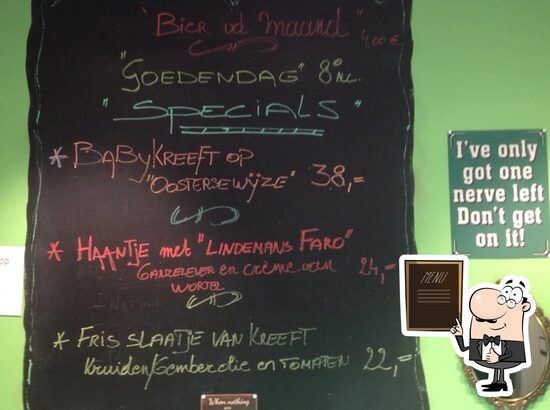 "Bier vd maand"
4,00€
"Goedendag" 8%alc.
"Specials"
* Babykreeft op
"Oosterse wijze" 38,=
* Haantje met "Lindemans Faro"
Ganzelever en crème van 24,=
wortel
* Fris slaatje van kreeft
Kruiden/Gemberolie en tomaten 22,=
When nothing
I've only
got one
nerve left
Don't get
on it!
MENU